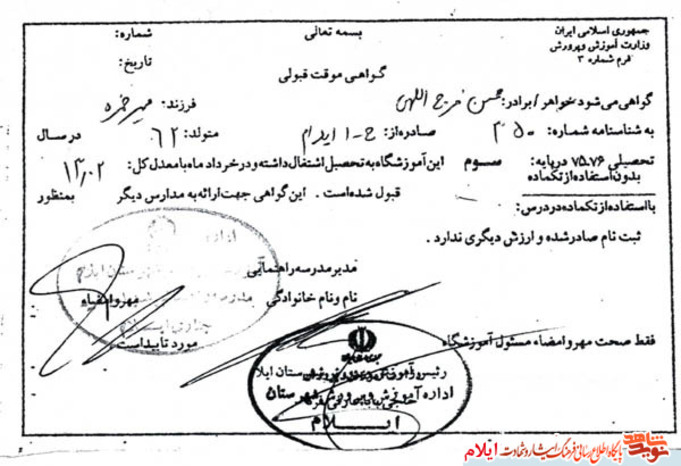 جمهوری اسلامی ایران
وزارت آموزش و پرورش
فرم شماره ۳
بسمه تعالی
شماره:
تاریخ:
گواهی موقت قبولی
گواهی می‌شود خواهر/برادر: حسن فرج اللهی فرزند: میرحمزه
به شناسنامه شماره: ۳۵۰ صادره از: ح-۱ ایلام متولد: ۶۲ در سال
تحصیلی ۷۵.۷۶ در پایه: سوم این آموزشگاه به تحصیل اشتغال داشته و در خرداد ماه با معدل کل: ۱۳٫۰۲
بدون استفاده از تکماده
با استفاده از تکماده در درس: قبول شده است . این گواهی جهت ارائه به مدارس دیگر بمنظور
ثبت نام صادر شده و ارزش دیگری ندارد .
مدیر مدرسه راهنمایی
نام و نام خانوادگی مهر و امضاء
فقط صحت مهر و امضاء مسئول آموزشگاه مورد تأیید است
اداره آموزش و پرورش شهرستان
ایلام
نوید شاهد
پایگاه اطلاع رسانی فرهنگ ایثار و شهادت ایلام